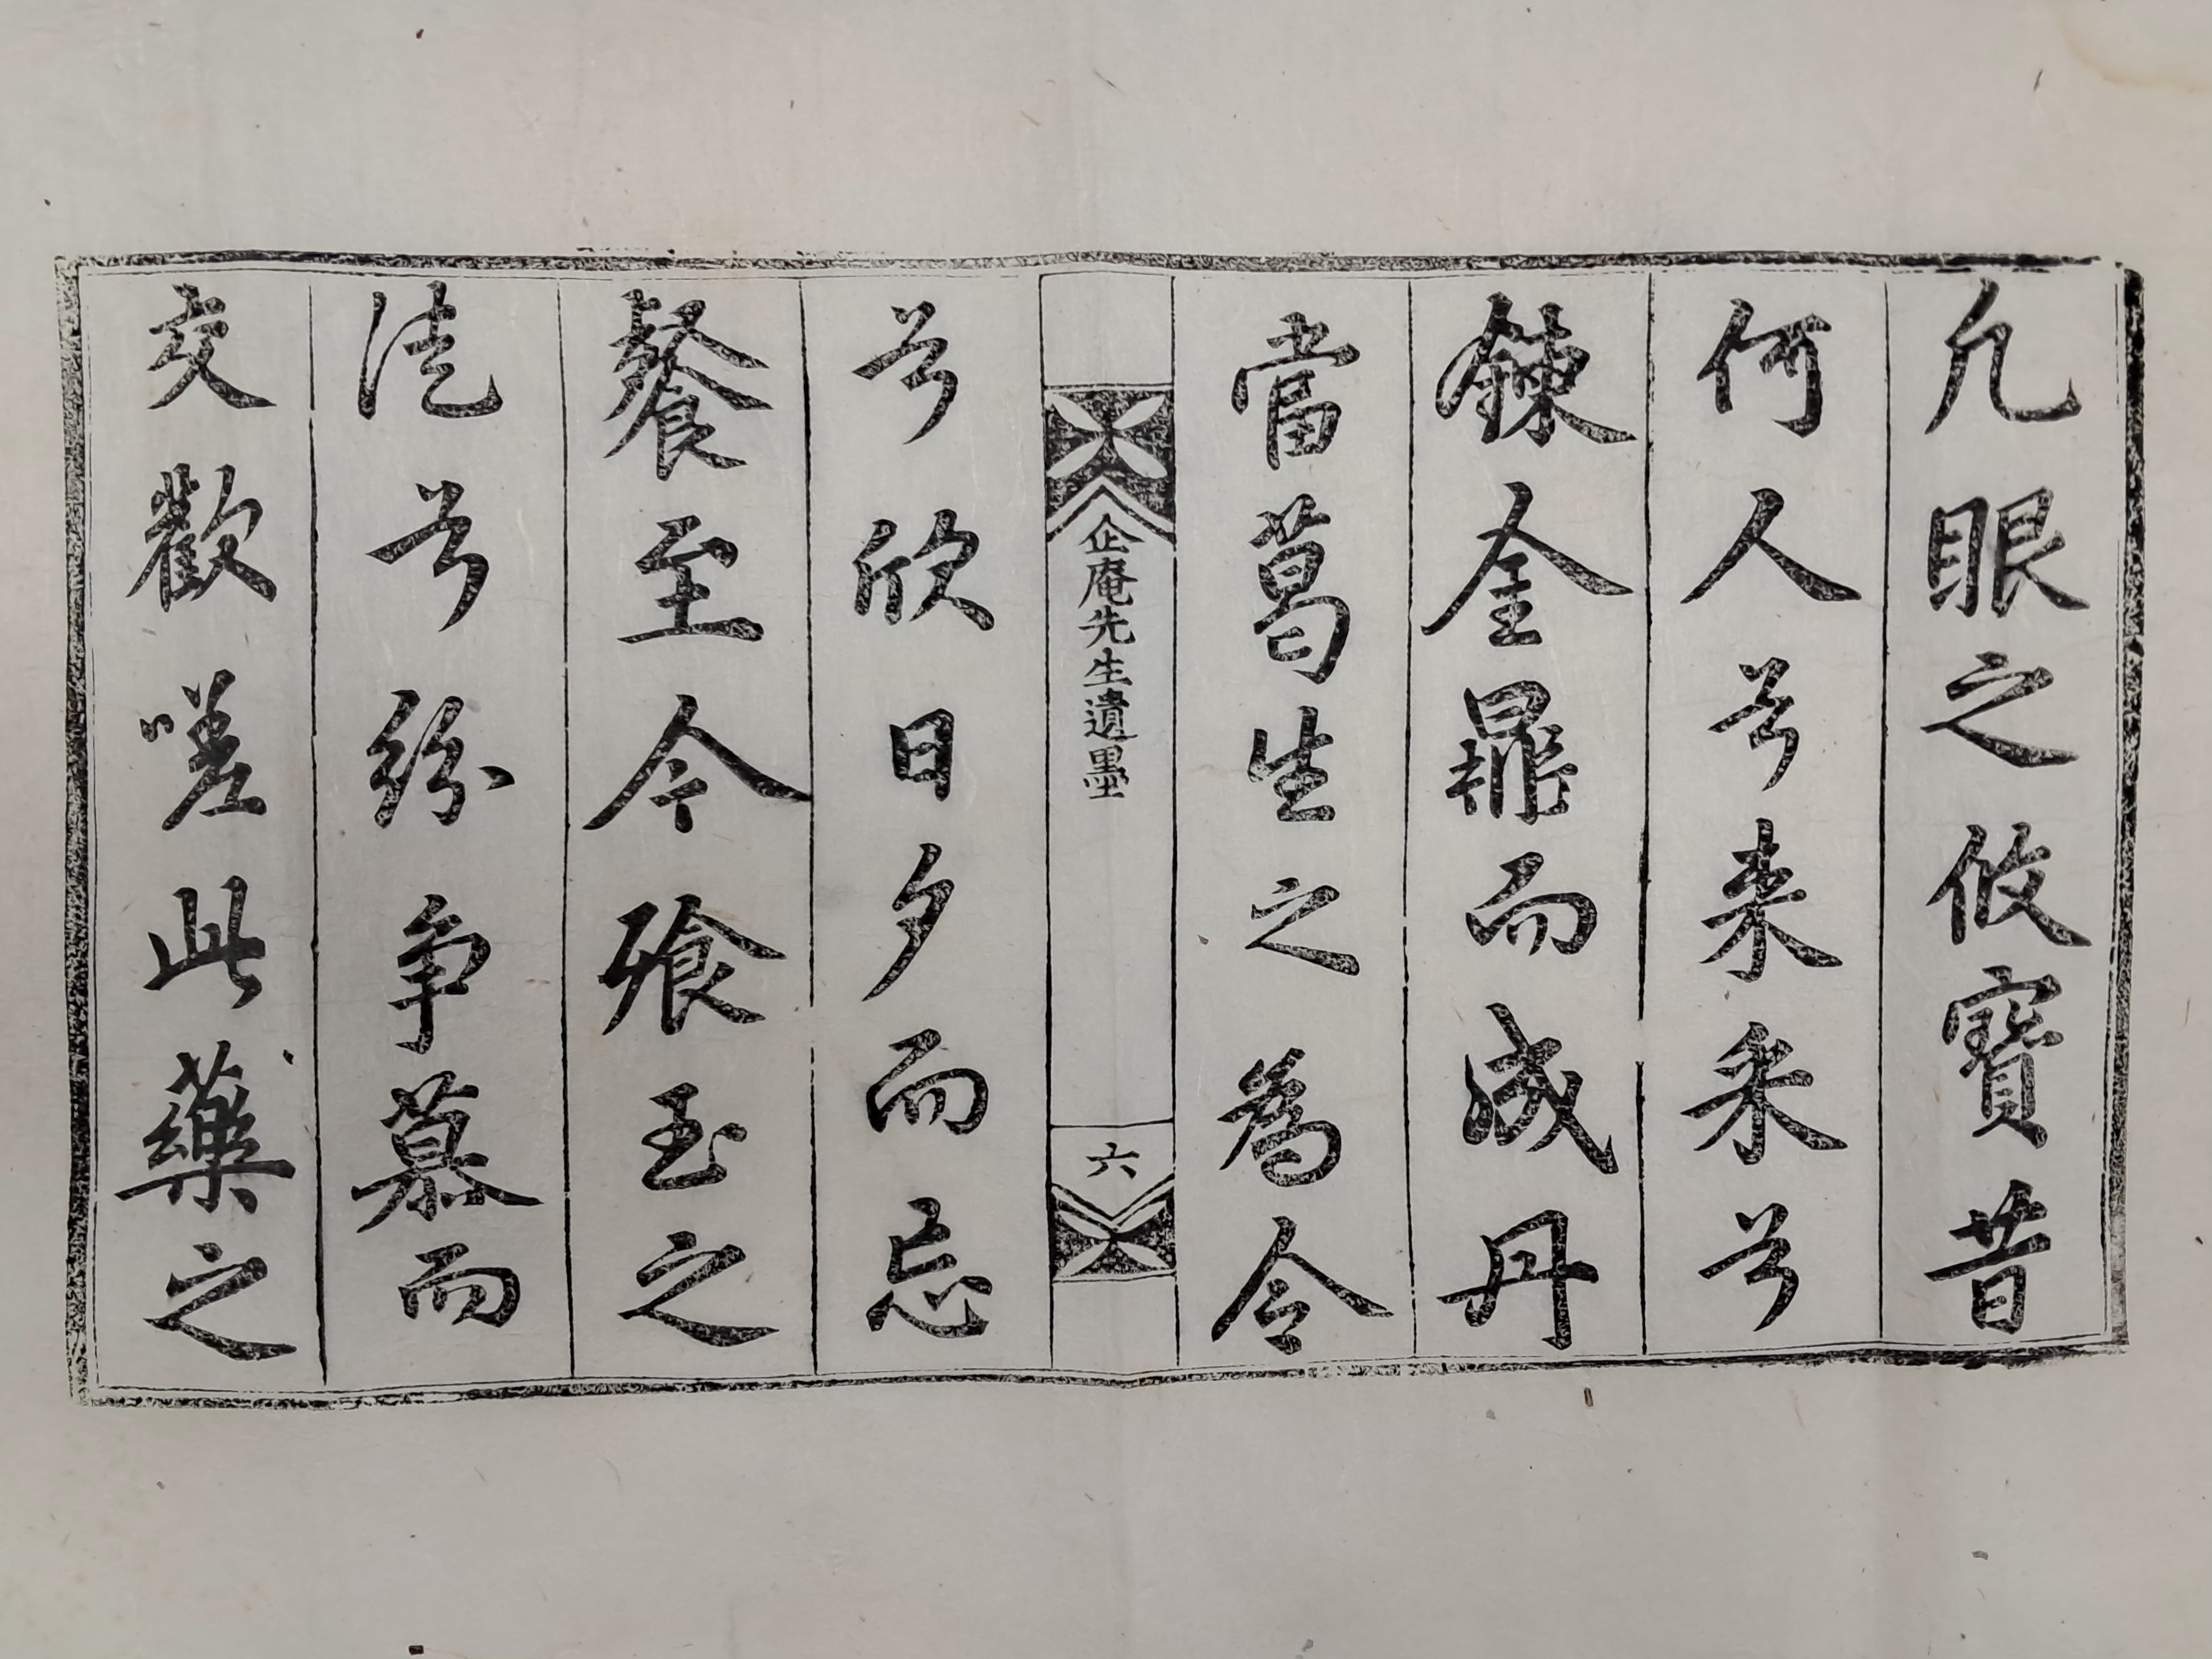 凡眼之攸寶昔
何人兮来采兮
鍊金鼎而成丹
當葛生之為令
企庵先生遺墨
六
兮欣日夕而忘
餐至今飡玉之
徒兮紛争慕而
交歡嗟此藥之